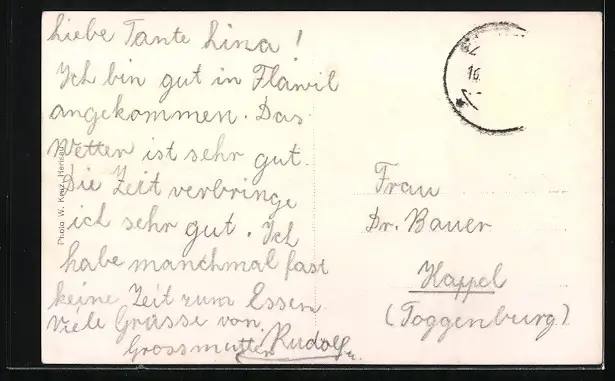 Liebe Tante Lina!
Ich bin gut in Flawil
angekommen. Das
Wetter ist sehr gut.
Die Zeit verbringe
ich sehr gut. Ich
habe manchmal fast
keine Zeit zum Essen
Viele Grüsse von
Grossmutter u. Rudolf
Frau
Dr. Bauer
Kappel
(Toggenburg)
Photo W. Kenz, Herisau
16.